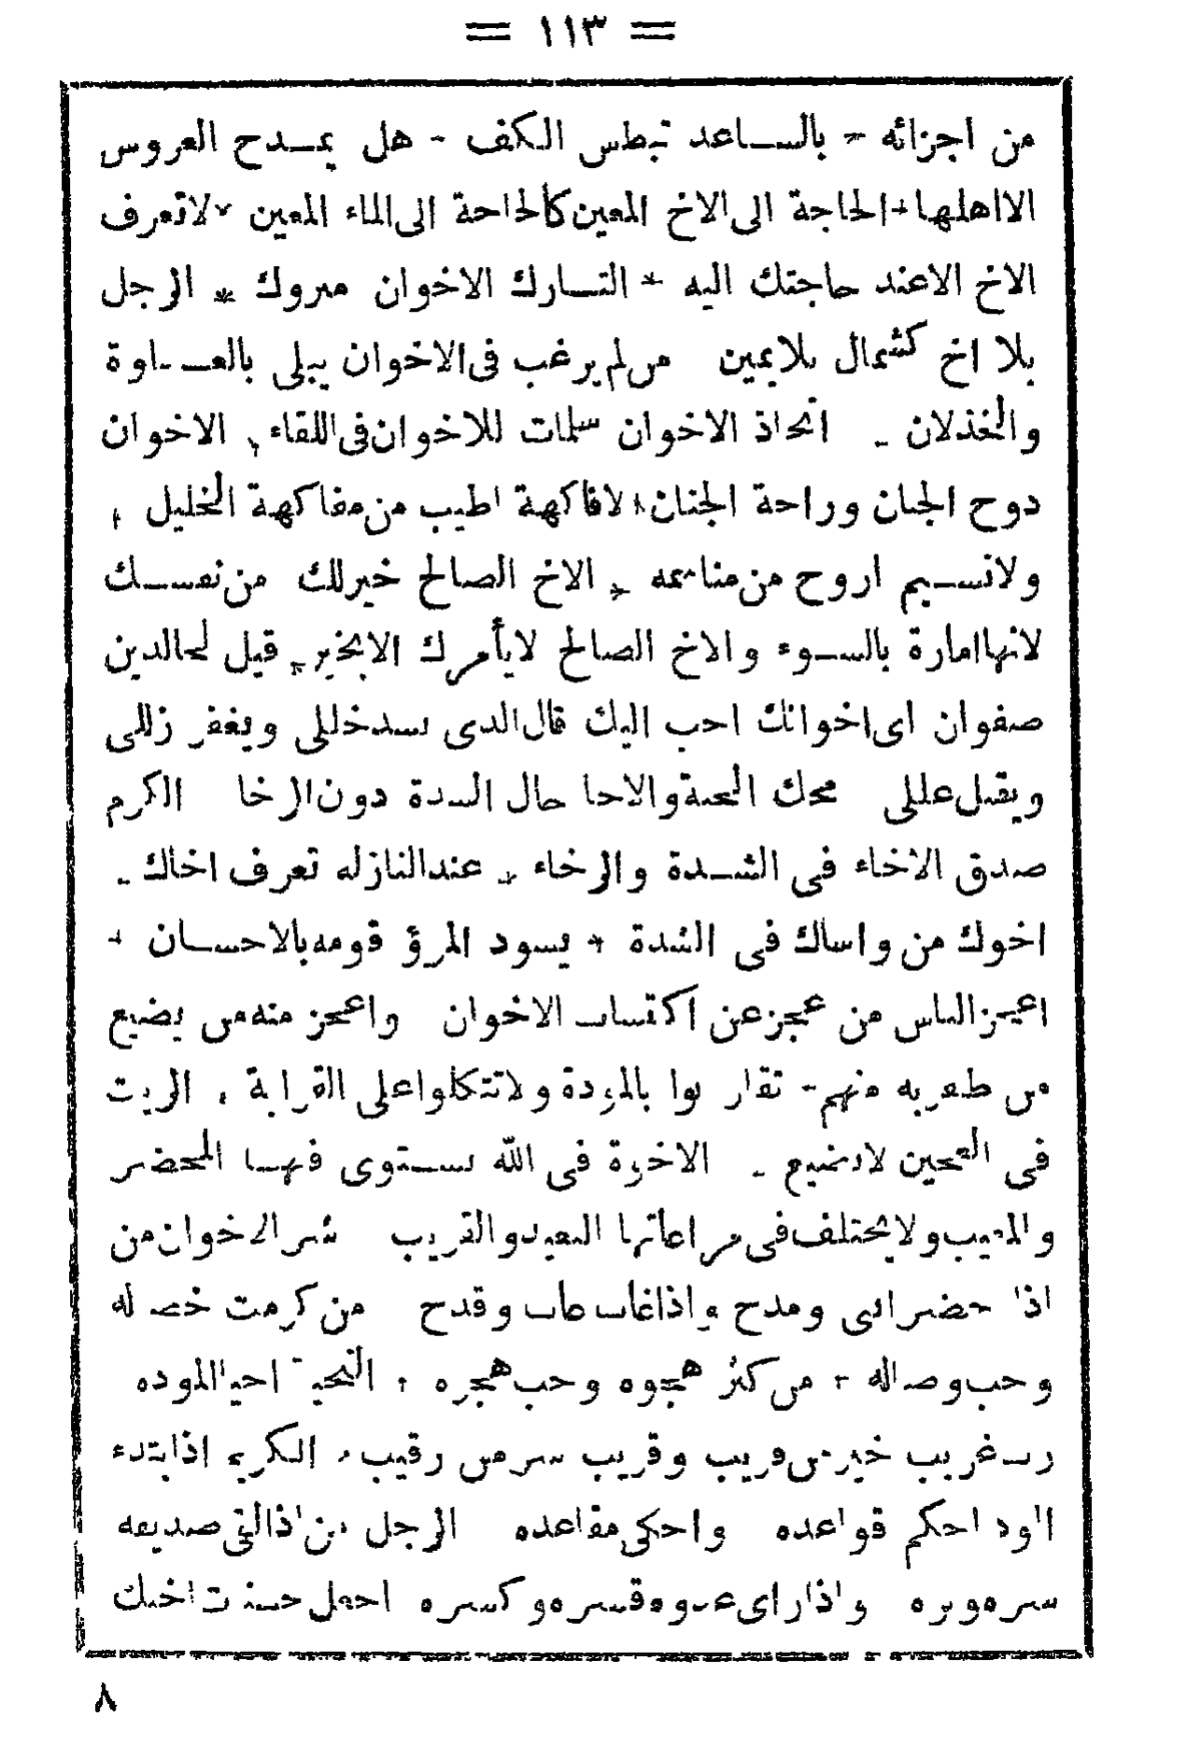 = ١١٣ =
من اجزائه - بالساعد تبطش الكف - هل يمدح العروس
الا اهلها * الحاجة الى الاخ المعين كالحاجة الى الماء المعين * لا تعرف
الاخ الا عند حاجتك اليه * التارك الاخوان متروك * الرجل
بلا اخ كشمال بلا يمين من لم يرغب فى الاخوان يبلى بالعداوة
والخذلان - اتخاذ الاخوان سلمات للاخوان فى اللقاء * الاخوان
دوح الجنان وراحة الجنان * لا فاكهة اطيب من مفاكهة الخليل *
ولا نسيم اروح من مناسمه * الاخ الصالح خير لك من نفسك
لانها امارة بالسوء والاخ الصالح لا يأمرك الا بخير * قيل لخالد بن
صفوان اى اخوانك احب اليك قال الذى يسد خللى ويغفر زللى
ويقبل عللى محك المحبة والاخا حال الشدة دون الرخا الكرم
صدق الاخاء فى الشدة والرخاء * عند النازله تعرف اخاك -
اخوك من واساك فى الشدة * يسود المرؤ قومه بالاحسان *
اعجز الناس من عجز عن اكتساب الاخوان واعجز منه من يضيع
من ظفر به منهم - تقاربوا بالمودة ولا تتكلوا على القرابة * الزيت
فى العجين لا يضيع - الاخوة فى الله يستوى فيها المحضر
والمغيب ولا يختلف فى مراعاتها البعيد والقريب شر الاخوان من
اذا حضر اثنى ومدح واذا غاب عاب وقدح من كرمت خصاله
وجب وصاله * من كثر هجوه وجب هجره * التحية احيا الموده
رب غريب خير من قريب وقريب شر من رقيب * الكريم اذا ابتدء
الود احكم قواعده واحكى مقاعده الرجل من اذا لقى صديقه
سره وبره واذا راى عدوه قسره وكسره احمل حسنات اخيك
٨